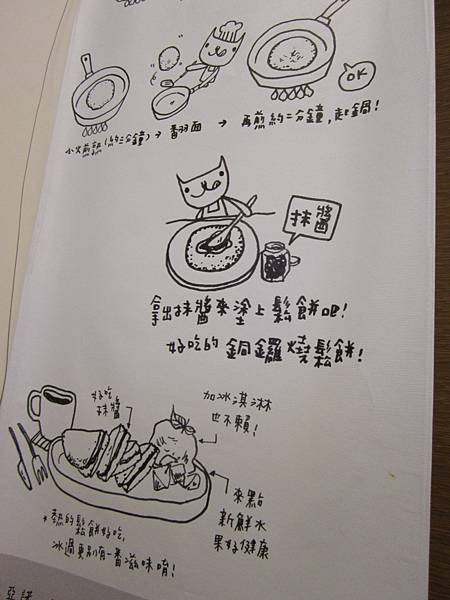 OK
小火煎熟(約三分鐘)→翻面 → 再煎約二分鐘,起鍋!
抹醬
拿出抹醬來塗上鬆餅吧!
好吃的銅鑼燒鬆餅!
好吃
抹醬
加冰淇淋
也不賴!
來點
新鮮水
果好健康
→熱的鬆餅好吃,
冰過更別有一番滋味唷!